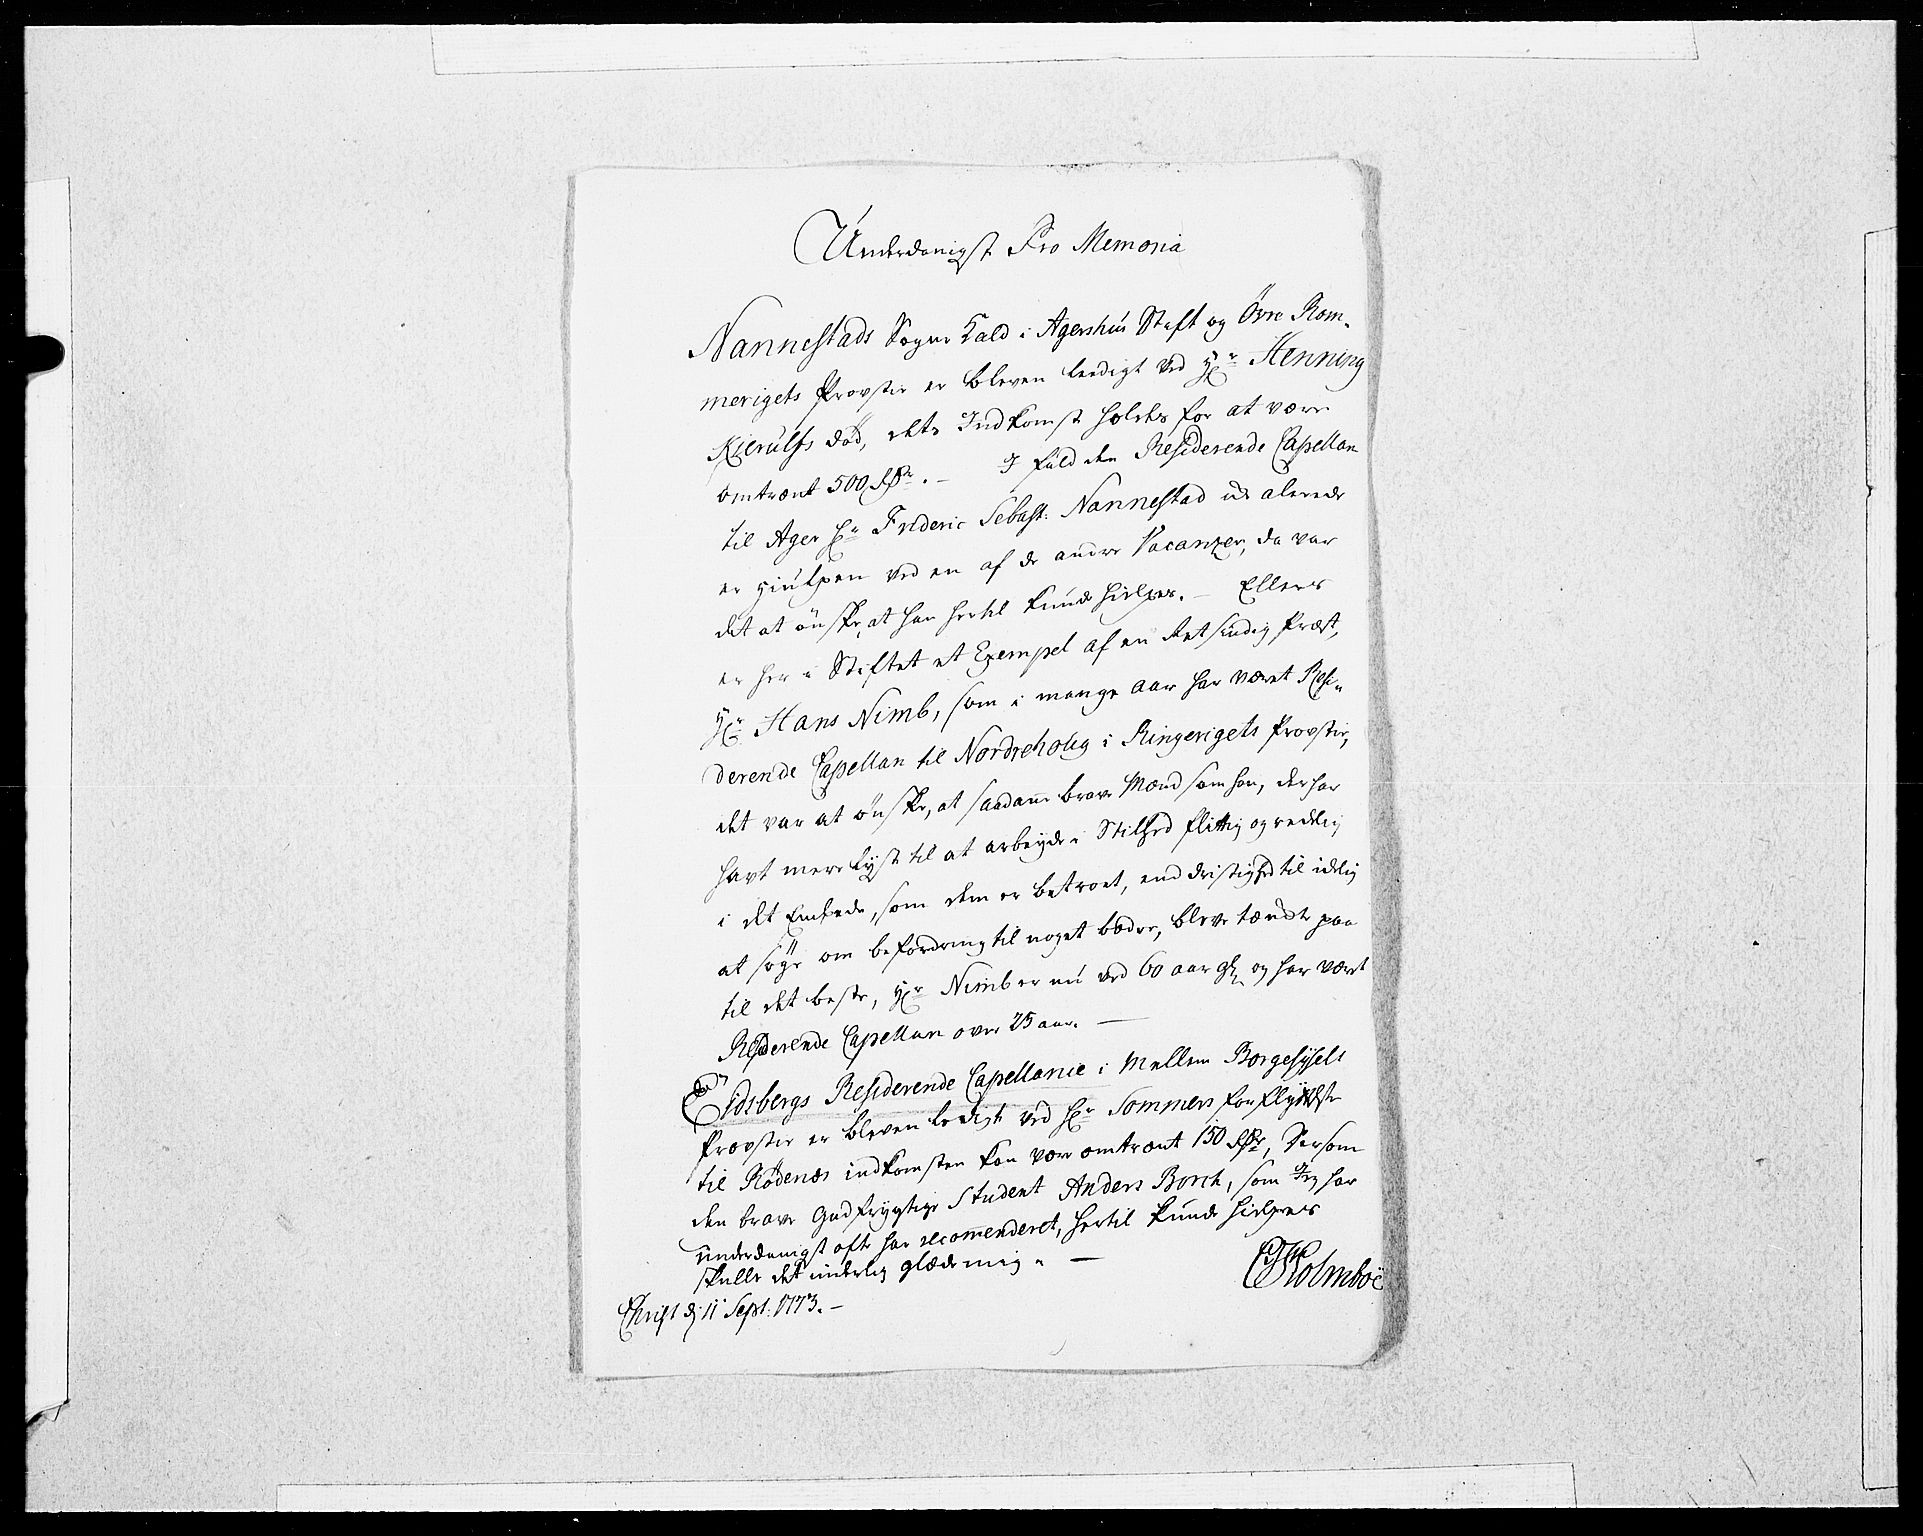 Underdanigst Pro Memoria
Nannestads Sogne Kald i Agershuus Stift og Övre Rom-
merigets Provstie er bleven leedigt ved Hr Henning
Kierulfs död, dets Indkomst holdes for at være
omtrent 500 Rdr. — I fald den Residerende Capellan
til Ager Hr Frideric Sebast: Nannestad ei alerede
er hiulpen ved en af de andre Vacanzer, da var
det at önske, at han hertil kunde hielpes. — Ellers
er her i Stiftet et Exempel af en Retsindig Præst,
Hr Hans Nimb, som i mange aar har været Resi-
derende Capellan til Nordrehoug i Ringerigets Provstie,
det var at önske, at saadanne brave Mænd som han, der har
havt mere Lyst til at arbeyde i Stilhed flittig og redelig
i det Embede, som dem er betroet, end dristighed til idelig
at söge om befordring til noget bedre, bleve tænkte paa
til det beste, Hr Nimb er nu ved 60 aar gl. og har været
Residerende Capellan over 25 aar. —
Eidsbergs Residerende Capellanie i Mellem Borgesyssels
Provstie er bleven ledigt ved Hr Sommers forflyttelse
til Rödenes indkomsten kan være omtrent 150 Rdr, Dersom
den brave Gudfrygtige Student Anders Borch, som Jeg har
underdanigst ofte har recommenderet, hertil kunde hielpes
skulle det inderlig glæde mig. —
CHolmboe
Christ d. 11 Sept: 1773. —